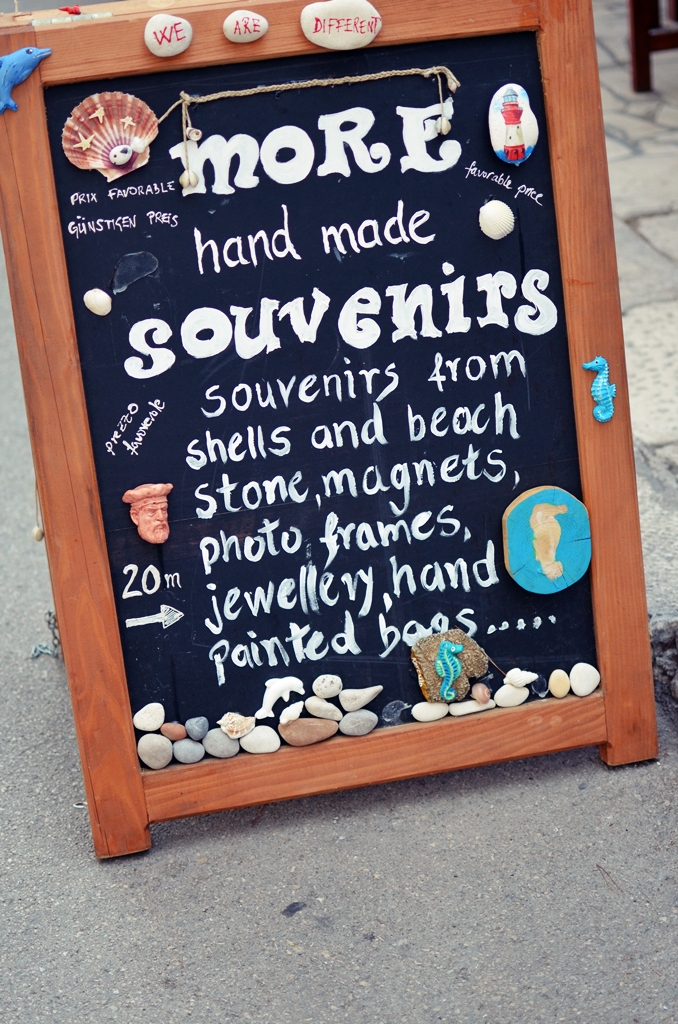 WE ARE DIFFERENT
MORE
PRIX FAVORABLE
GÜNSTIGEN PREIS
favorable price
hand made
souvenirs
souvenirs from
shells and beach
stone, magnets,
prezzo
favorevole
photo frames,
20m
jewellery, hand
painted bags.....